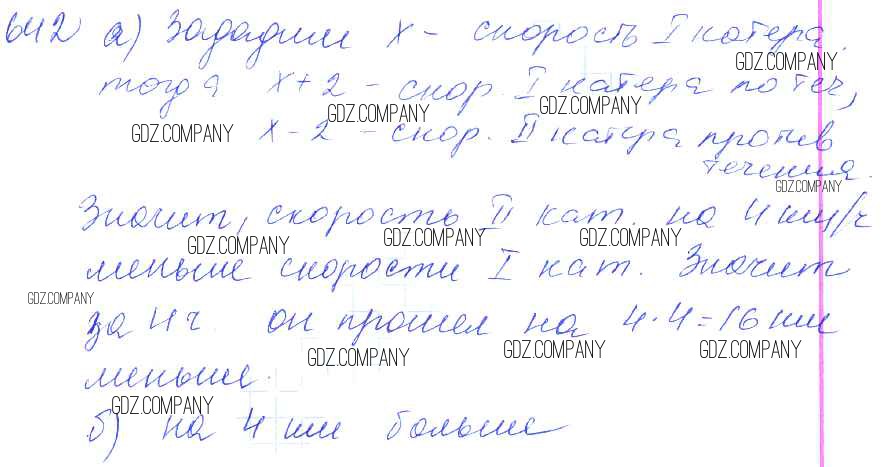 642 а) Зададим x - скорость I катера.
GDZ.COMPANY
тогда x+2 - скор. I катера по теч,
GDZ.COMPANY GDZ.COMPANY
GDZ.COMPANY x-2 - скор. II катера против
течения.
GDZ.COMPANY
Значит, скорость II кат. на 4 км/ч
GDZ.COMPANY GDZ.COMPANY GDZ.COMPANY
меньше скорости I кат. Значит
GDZ.COMPANY
за 4 ч. он прошел на 4·4=16 км
GDZ.COMPANY GDZ.COMPANY GDZ.COMPANY
меньше.
GDZ.COMPANY
б) на 4 км больше